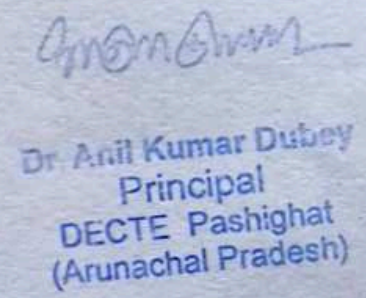 Dr. Anil Kumar Dubey
Principal
DECTE Pashighat
(Arunachal Pradesh)